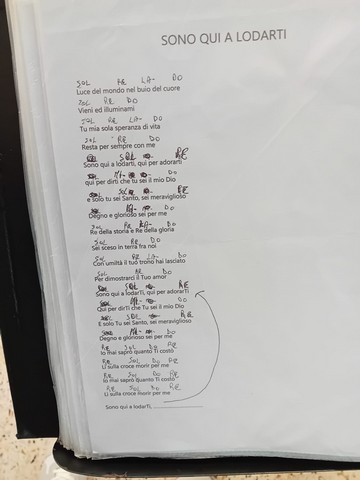 SONO QUI A LODARTI
SOL RE LA- DO
Luce del mondo nel buio del cuore
SOL RE DO
Vieni ed illuminami
SOL RE LA- DO
Tu mia sola speranza di vita
SOL RE DO
Resta per sempre con me
SOL RE
Sono qui a lodarti, qui per adorarti
MI- DO
qui per dirti che tu sei il mio Dio
SOL RE
e solo tu sei Santo, sei meraviglioso
DO
Degno e glorioso sei per me
SOL RE LA- DO
Re della storia e Re della gloria
SOL RE DO
Sei sceso in terra fra noi
SOL RE LA- DO
Con umiltà il tuo trono hai lasciato
SOL RE DO
Per dimostrarci il Tuo amor
SOL RE
Sono qui a lodarTi, qui per adorarTi
MI- DO
Qui per dirTi che Tu sei il mio Dio
SOL RE
E solo Tu sei Santo, sei meraviglioso
MI- DO
Degno e glorioso sei per me
RE SOL DO RE
Io mai saprò quanto Ti costò
RE SOL DO RE
Lì sulla croce morir per me
RE SOL DO RE
Io mai saprò quanto Ti costò
RE SOL DO RE
Lì sulla croce morir per me
Sono qui a lodarTi, _______________